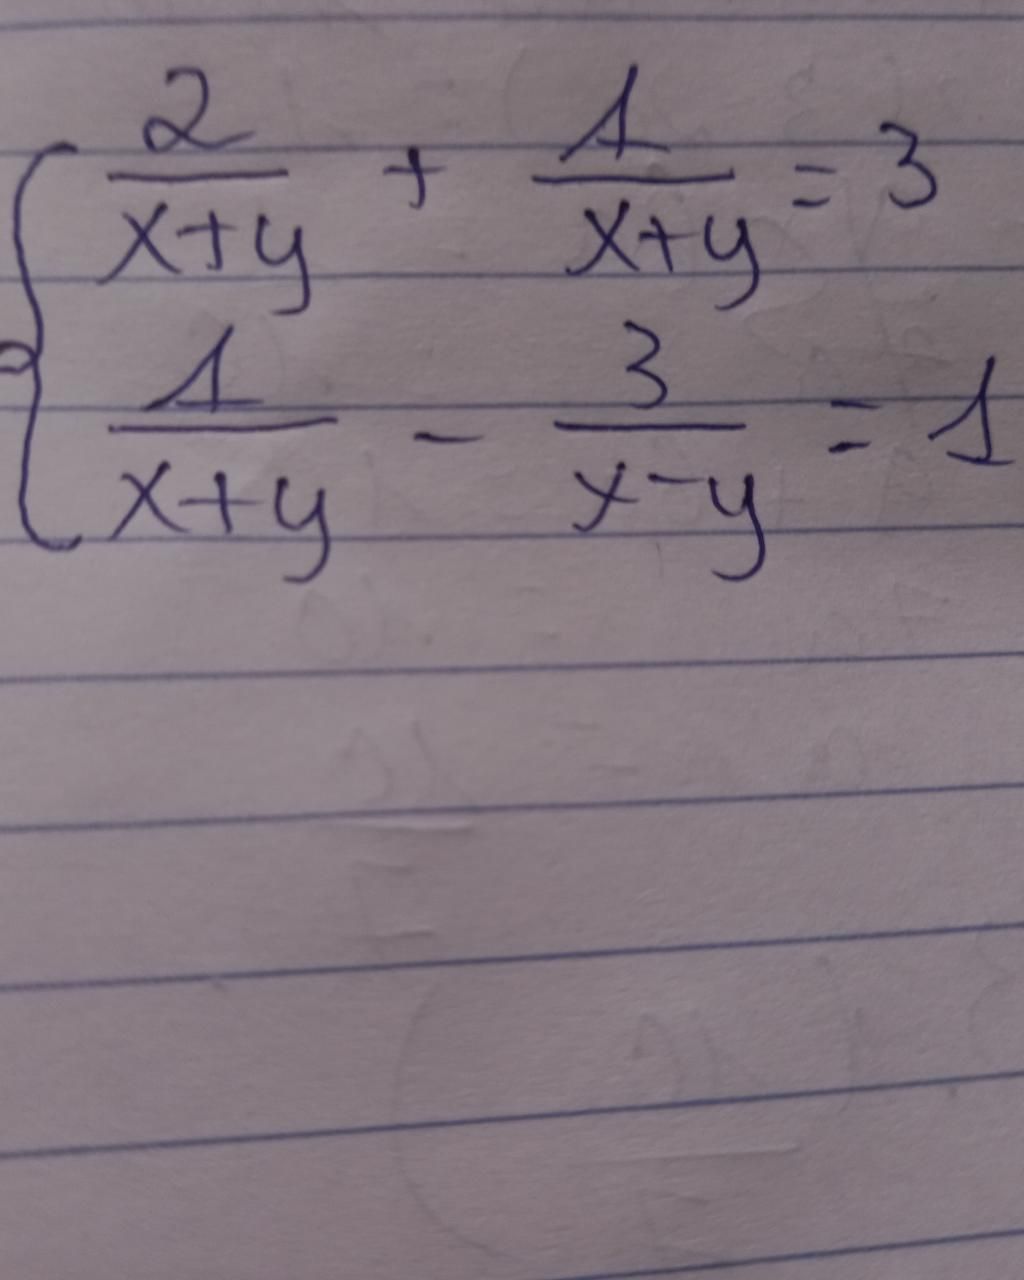 2/(x+y) + 1/(x+y) = 3
1/(x+y) - 3/(x-y) = 1